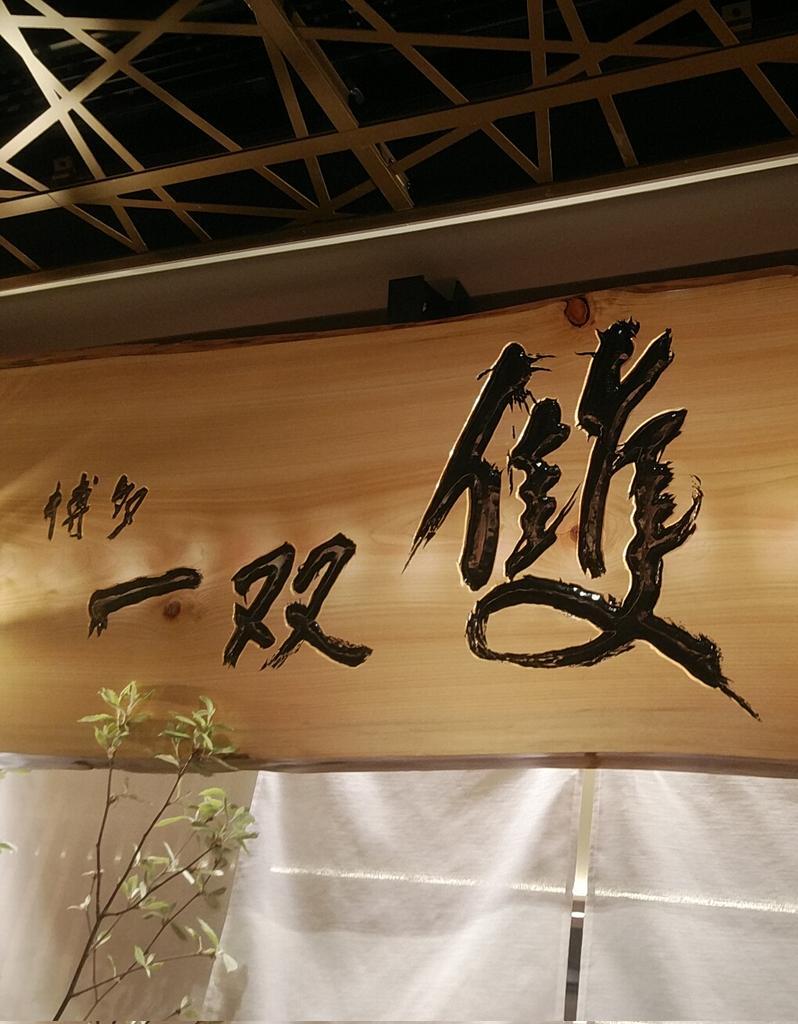 博多
一双
雙